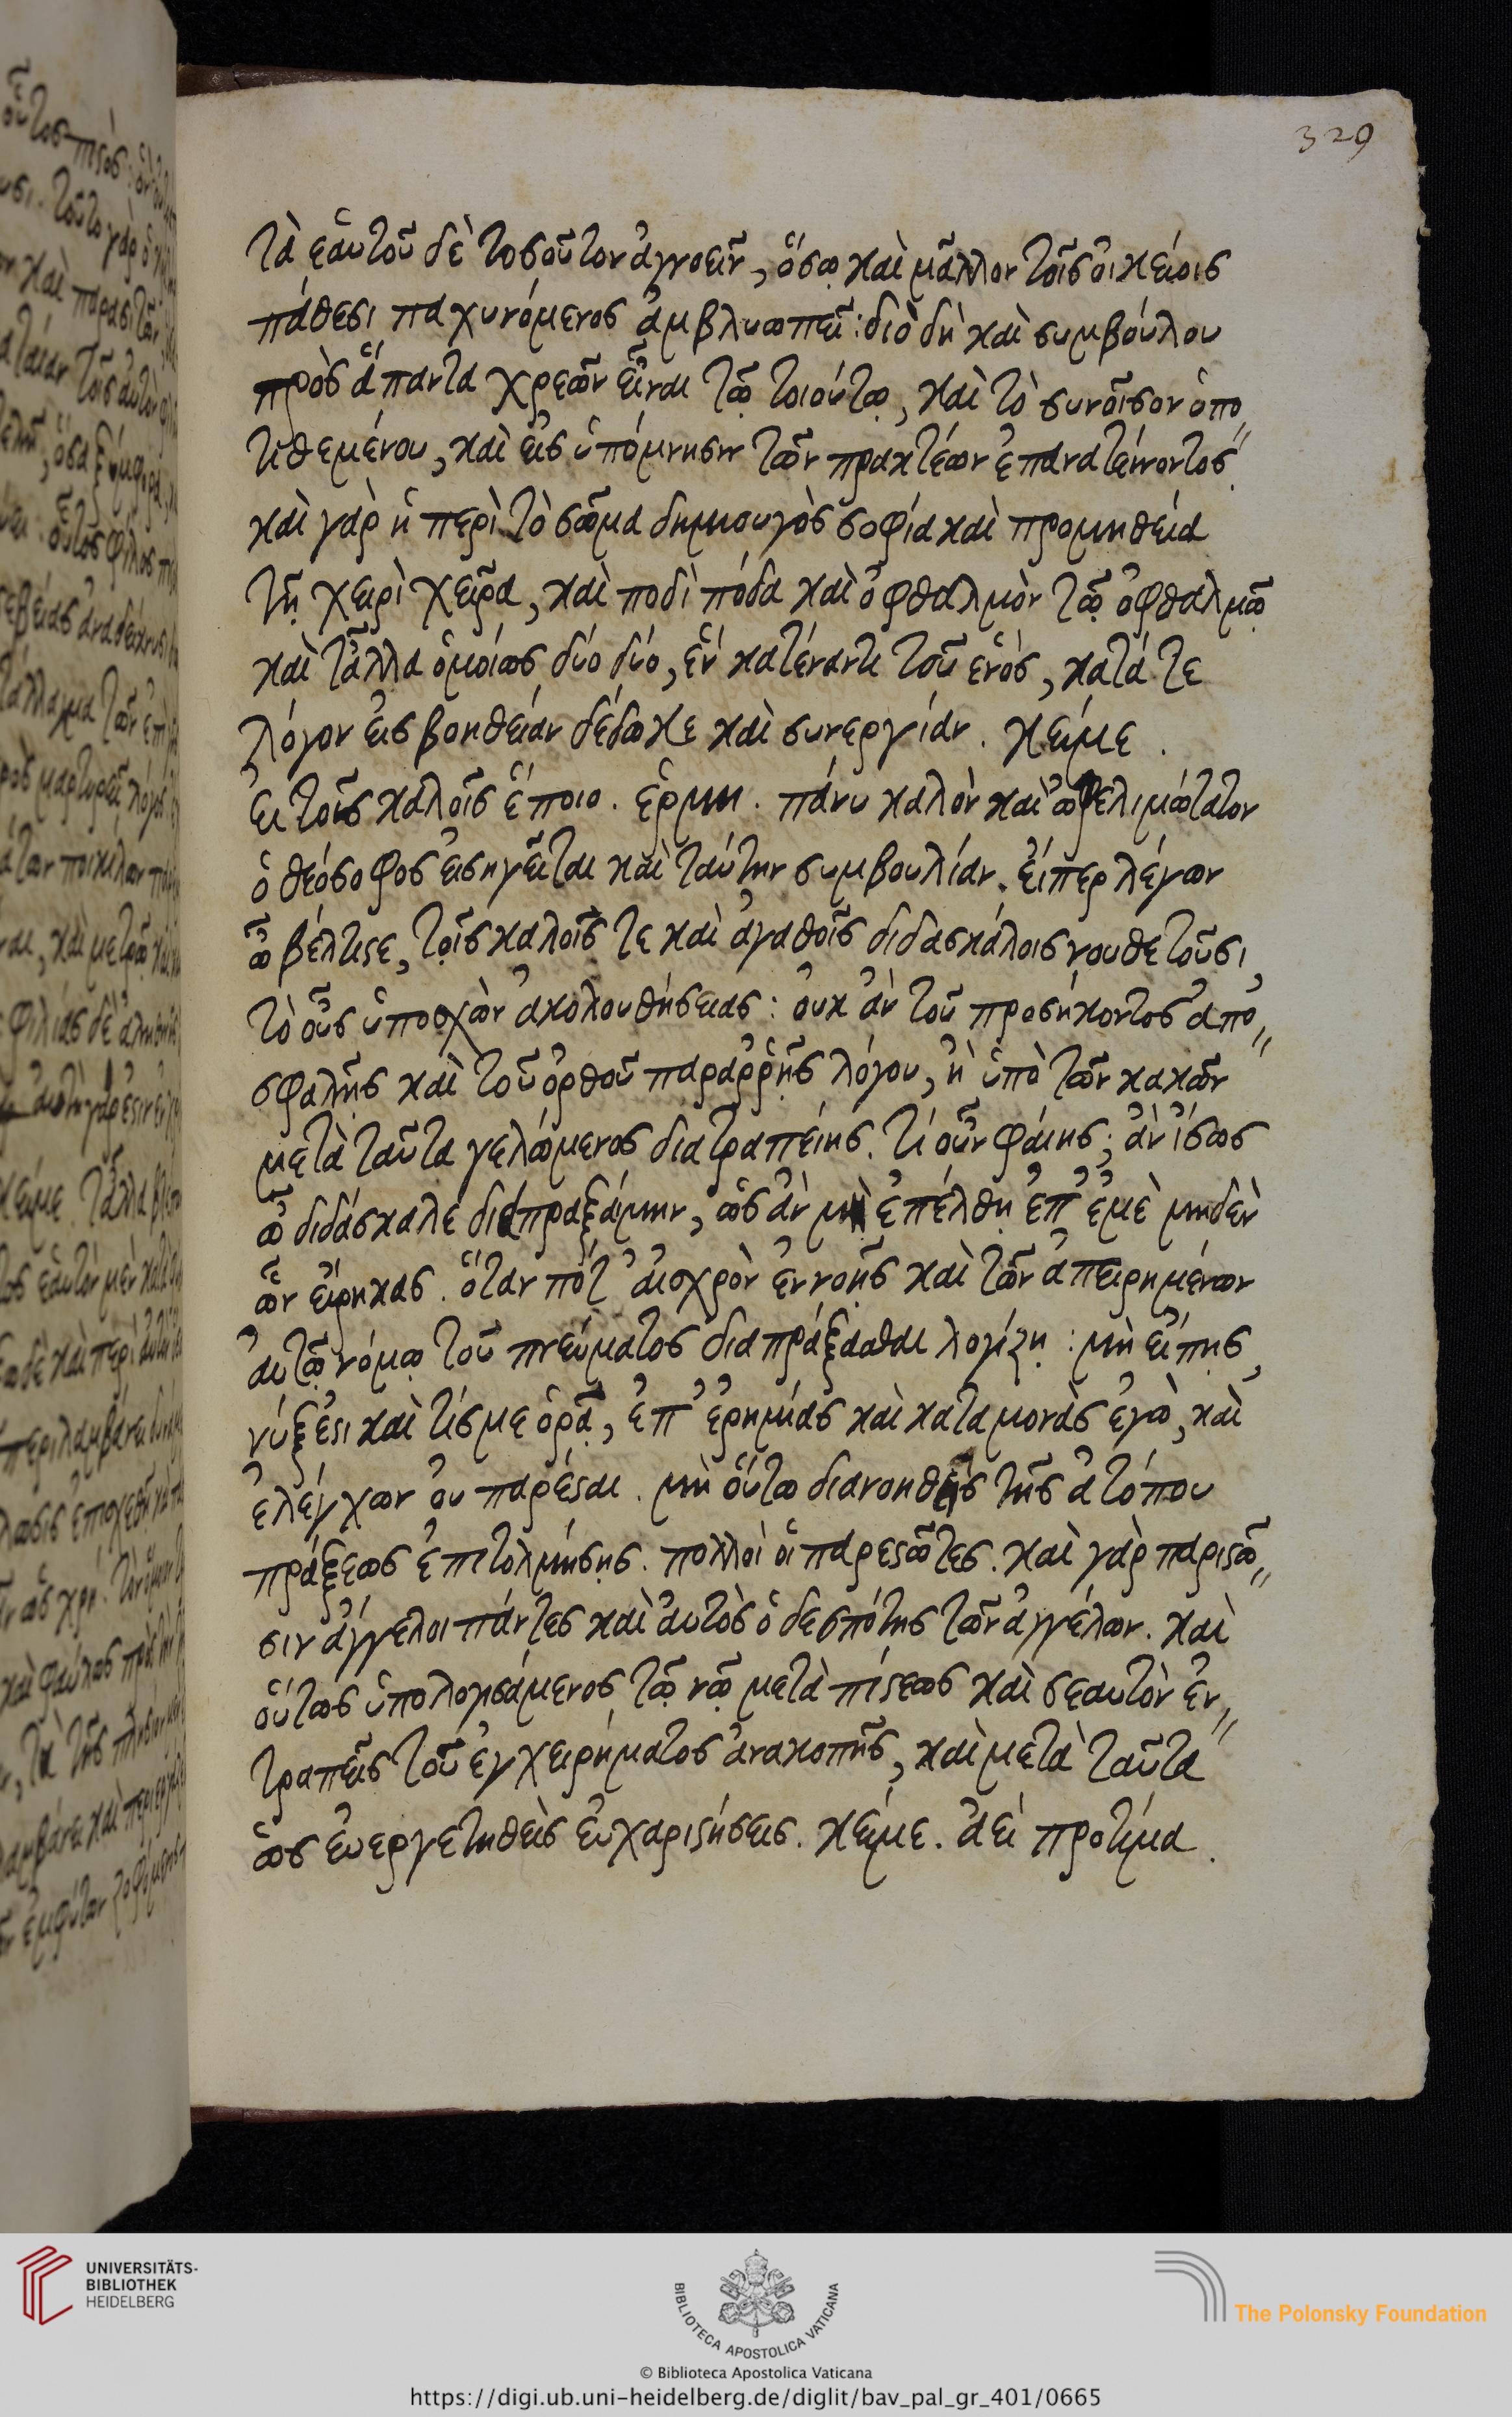 329
τὰ ἑαυτοῦ δὲ τοσοῦτον ἀγνοεῖν, ὅσω καὶ μᾶλλον τοῖς οἰκείοις
πάθεσι παχυνόμενος ἀμβλυωπεῖ: διὸ δὴ καὶ συμβούλου
πρὸς ἅπαντα χρεῶν εἶναι τῷ τοιούτῳ, καὶ τὸ συνοῖσον ὑπο
τιθεμένου, καὶ εἰς ὑπόμνησιν τῶν πρακτέων ἐπανατείνοντος.
καὶ γὰρ ἡ περὶ τὸ σῶμα δημιουγὸς σοφία καὶ προμηθεία
τῇ χειρὶ χεῖρα, καὶ ποδὶ πόδα καὶ ὀφθαλμὸν τῷ ὀφθαλμῷ
καὶ τἆλλα ὁμοίως δύο δύο, ἓν κατέναντι τοῦ ἑνὸς, κατά τε
λόγον εἰς βοηθείαν δέδωκε καὶ συνεργίαν. κείμε.
εἰ τοῖς καλοῖς ἕποιο. ἑρμη. πάνυ καλὸν καὶ ὠφελιμώτατον
ὁ θεόσοφος εἰσηγεῖται καὶ ταύτην συμβουλίαν. εἴπερ λέγων
ὦ βέλτιϛε, τοῖς καλοῖς τε καὶ ἀγαθοῖς διδασκάλοις νουθετοῦσι,
τὸ οὖς ὑποσχὼν ἀκολουθήσειας: οὐκ ἂν τοῦ προσήκοντος ἀπο
σφαλῇς καὶ τοῦ ὀρθοῦ παραῤῥῇς λόγου, ἢ ὑπὸ τῶν κακῶν
μετὰ ταῦτα γελώμενος διατραπείης. τί οὖν φαίης; ἂν ἴσως
ὦ διδάσκαλε διαπραξάμην, ὡς ἂν μὴ ἐπέλθῃ ἐπ' ἐμὲ μηδὲν
ὧν εἴρηκας. ὅταν πότ' αἰσχρὸν ἐννοῇς καὶ τῶν ἀπειρημένων
αὐτῷ νόμῳ τοῦ πνεύματος διαπράξασθαι λογίζῃ: μὴ εἴπῃς,
νύξ ἐϛι καὶ τίς με ὁρᾷ, ἐπ' ἐρημίας καὶ καταμονὰς ἐγὼ, καὶ
ἐλέγχων οὐ πάρεϛαι. μὴ οὕτω διανοηθεὶς τῆς ἀτόπου
πράξεως ἐπιτολμήσῃς. πολλοὶ οἱ παρεϛῶτες. καὶ γὰρ παριϛῶ
σιν ἄγγελοι πάντες καὶ αὐτὸς ὁ δεσπότης τῶν ἀγγέλων. καὶ
οὕτως ὑπολογισάμενος τῷ νῷ μετὰ πίϛεως καὶ σεαυτὸν ἐν
τραπεὶς τοῦ ἐγχειρήματος ἀνακοπῇς, καὶ μετὰ ταῦτα
ὡς εὐεργετηθεὶς εὐχαριϛήσεις. κείμε. ἀεὶ προτίμα.
UNIVERSITÄTS-
BIBLIOTHEK
HEIDELBERG
BIBLIOTECA APOSTOLICA VATICANA
The Polonsky Foundation
© Biblioteca Apostolica Vaticana
https://digi.ub.uni-heidelberg.de/diglit/bav_pal_gr_401/0665